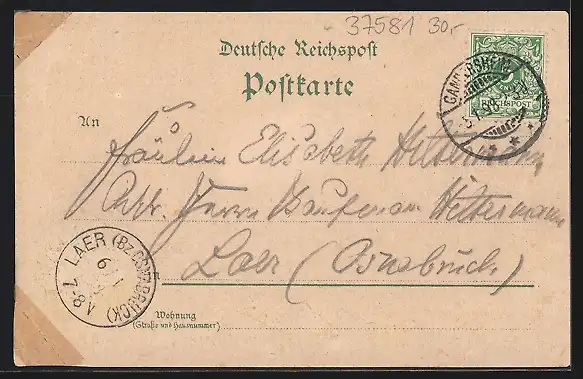 37581 30.-
Deutsche Reichspost
Postkarte
5
REICHSPOST
GANDERSHEIM
An
Fräulein Elisabeth Hiltermann
Adr. Herrn Kaufmann Hiltermann
Laer (Osnabrück)
LAER (Bz. OSNABRÜCK)
6/1
7-8 V
Wohnung
(Straße und Hausnummer)